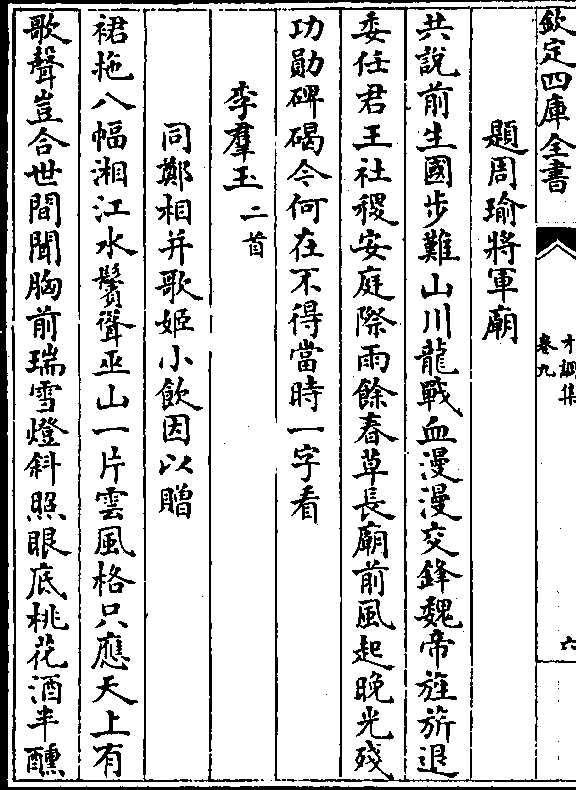 欽定四庫全書
才調集
卷九
六
題周瑜將軍廟
共說前生國步難山川龍戰血漫漫交鋒魏帝旌旂退
委任君王社稷安庭際雨餘春草長廟前風起晚光殘
功勛碑碣今何在不得當時一字看
李羣玉二首
同鄭相并歌姬小飲因以贈
裙拖八幅湘江水鬢聳巫山一片雲風格只應天上有
歌聲豈合世間聞胸前瑞雪燈斜照眼底桃花酒半醺